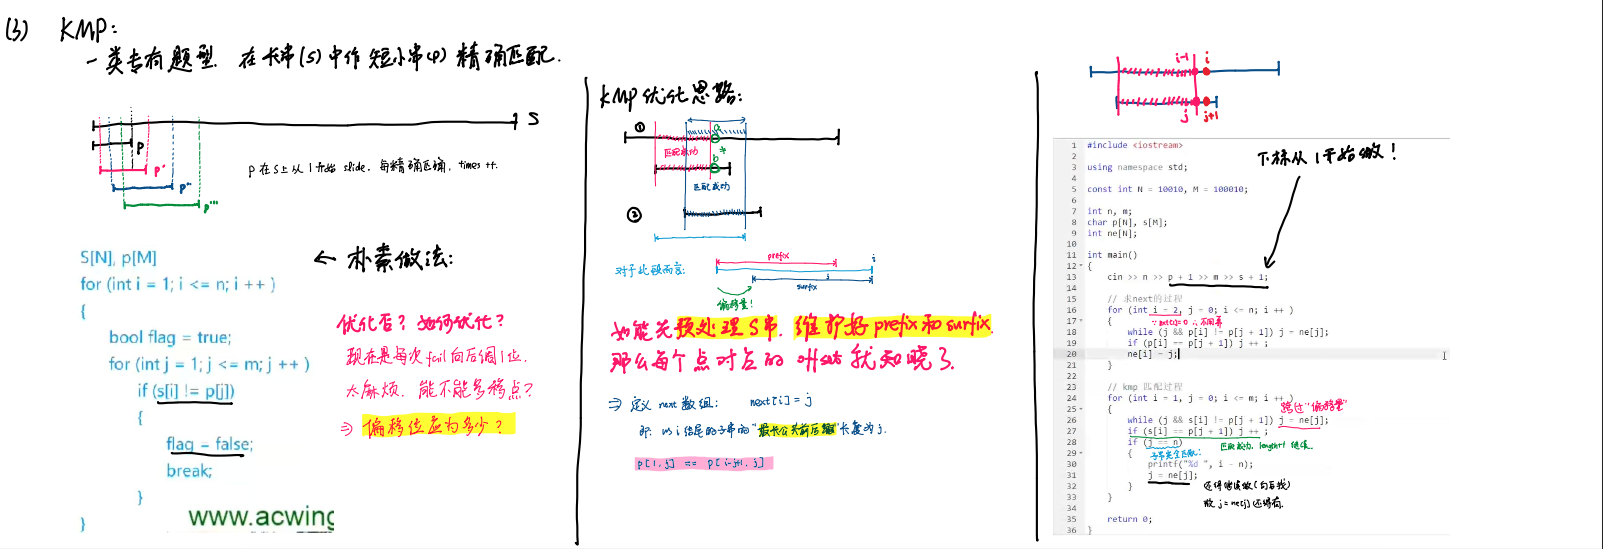 (3) KMP:
一类专有题型. 在长串(s)中作短小串(p)精确匹配.
S
p
p'
p''
p'''
p在S上从1开始slide. 每精确匹配, times ++.
S[N], p[M]
for (int i = 1; i <= n; i ++ )
{
bool flag = true;
for (int j = 1; j <= m; j ++ )
if (s[i] != p[j])
{
flag = false;
break;
}
}
www.acwing
← 朴素做法:
优化否? 如何优化?
现在是每次fail向后调1位.
太麻烦. 能不能多移点?
⇒ 偏移位应为多少?
KMP优化思路:
①
a
匹配成功
*
b
匹配成功
②
对于此段而言:
prefix
i
surfix
偏移量!
如能先预处理S串. 维护好prefix和surfix.
那么每个点对应的offset就知晓了.
⇒ 定义next数组: next[i] = j
即: 以i结尾的子串的"最长公共前后缀"长度为j.
p[1, j] == p[i-j+1, j]
i-1 i
j j+1
下标从1开始做!
1 #include <iostream>
2
3 using namespace std;
4
5 const int N = 10010, M = 100010;
6
7 int n, m;
8 char p[N], s[M];
9 int ne[N];
10
11 int main()
12 {
13 cin >> n >> p + 1 >> m >> s + 1;
14
15 // 求next的过程
16 for (int i = 2, j = 0; i <= n; i ++ )
17 {
∵ next[1]=0 ∴ 不用算
18 while (j && p[i] != p[j + 1]) j = ne[j];
19 if (p[i] == p[j + 1]) j ++ ;
20 ne[i] = j;
21 }
22
23 // kmp 匹配过程
24 for (int i = 1, j = 0; i <= m; i ++ )
25 {
跨过"偏移量"
26 while (j && s[i] != p[j + 1]) j = ne[j];
27 if (s[i] == p[j + 1]) j ++ ;
28 if (j == n)
匹配成功, length+1 继续.
29 {
子串完全匹配:
30 printf("%d ", i - n);
31 j = ne[j];
32 }
还得继续做(向后找)
33 }
故 j = ne[j] 还得有.
34
35 return 0;
36 }